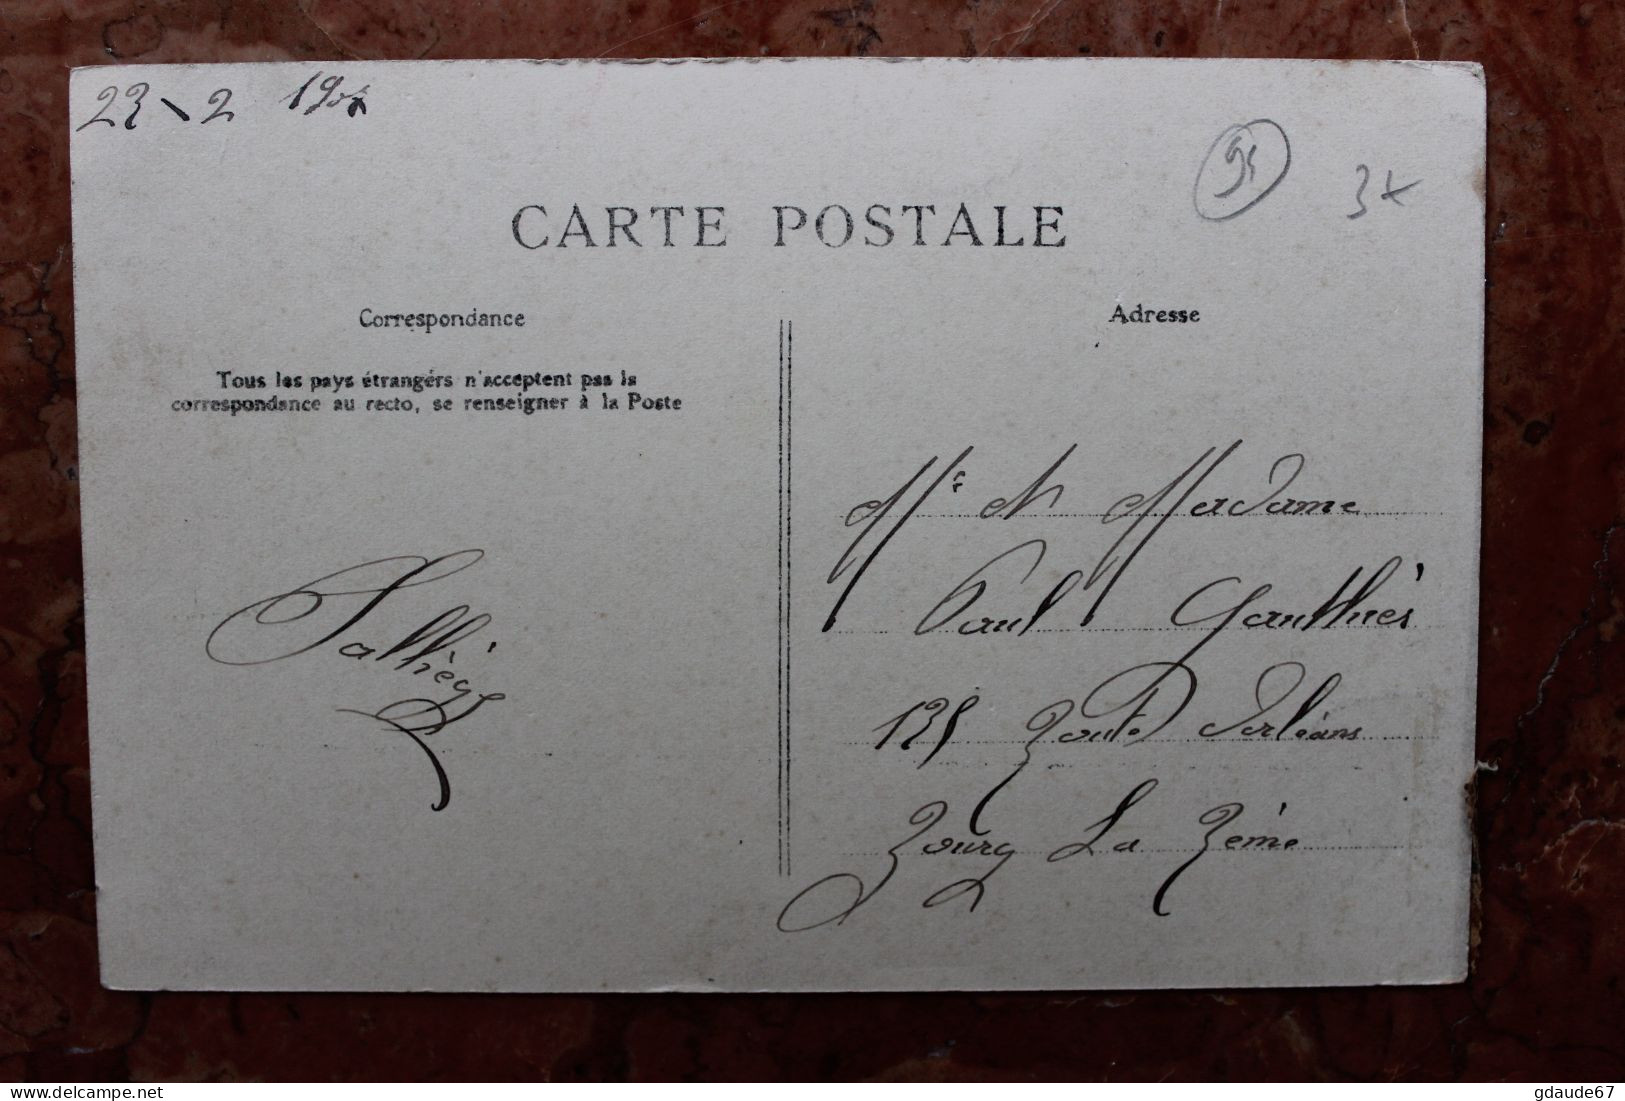 23 \ 2 1907
91
3x
CARTE POSTALE
Correspondance
Adresse
Tous les pays étrangérs n'acceptent pas la
correspondance au recto, se renseigner à la Poste
Mr et Madame
Paul Gauthier
135 Route d'Orléans
Bourg La Reine
Sallièze
gdaude67